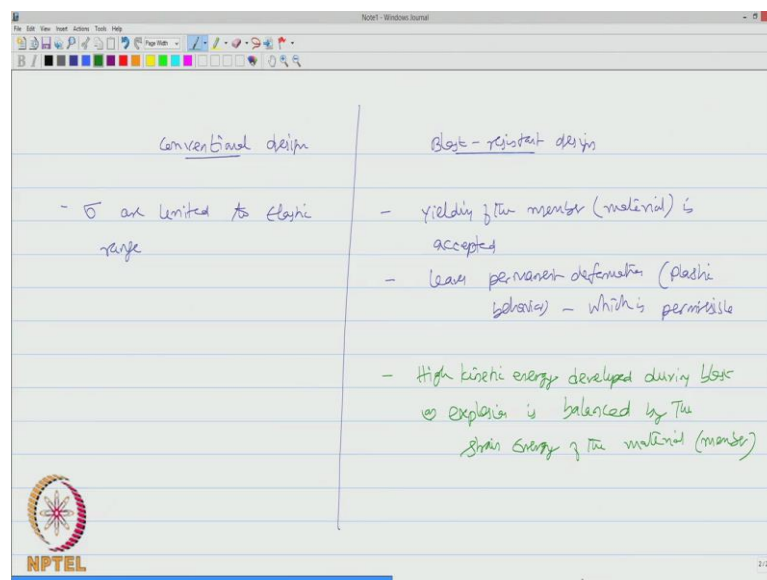 Note1 - Windows Journal
File Edit View Insert Actions Tools Help
Page Width
B I
Conventional design
- σ are limited to elastic
range
Blast - resistant design
- yielding of the member (material) is
accepted
- leaves permanent deformation (plastic
behavior) - which is permissible
- High kinetic energy developed during blast
explosion is balanced by the
strain energy of the material (member)
NPTEL